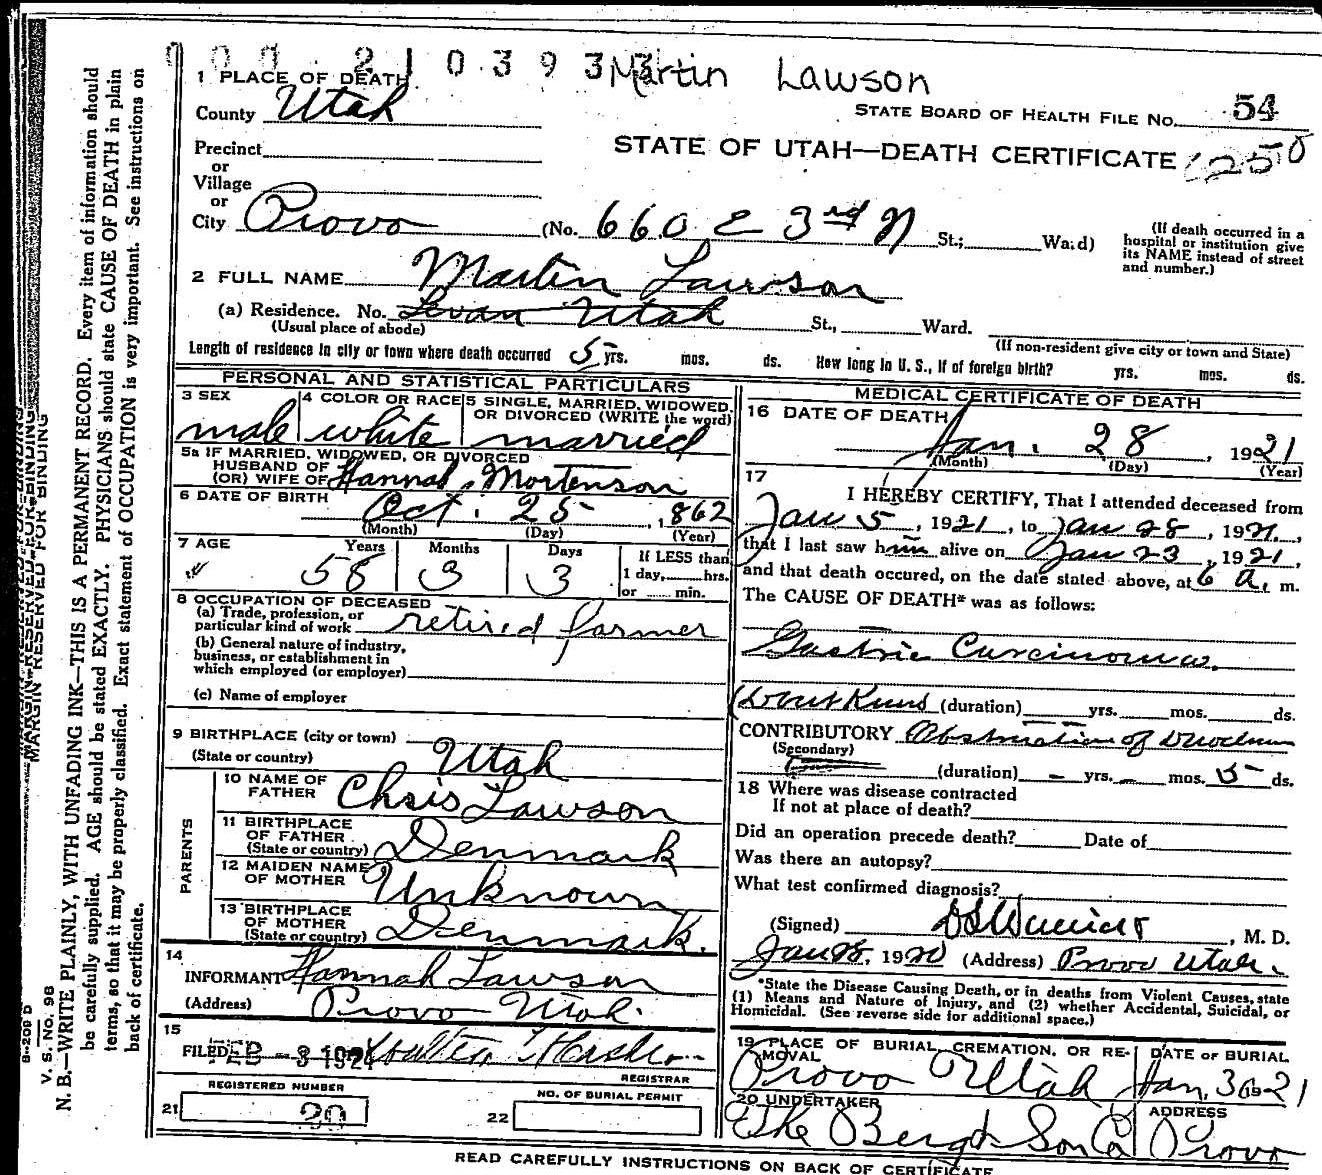 Martin Lawson
1 PLACE OF DEATH
STATE BOARD OF HEALTH FILE No. 54
County Utah
STATE OF UTAH—DEATH CERTIFICATE
Precinct
or
Village
or
City Provo (No. 660 E 3rd N St.; Ward)
(If death occurred in a
hospital or institution give
its NAME instead of street
and number.)
2 FULL NAME Martin Lawson
(a) Residence. No. Levan Utah St., Ward.
(Usual place of abode)
(If non-resident give city or town and State)
Length of residence in city or town where death occurred 5 yrs. mos. ds. How long in U. S., if of foreign birth? yrs. mos. ds.
PERSONAL AND STATISTICAL PARTICULARS
3 SEX
male
4 COLOR OR RACE
white
5 SINGLE, MARRIED, WIDOWED
OR DIVORCED (WRITE the word)
married
5a IF MARRIED, WIDOWED, OR DIVORCED
HUSBAND OF
(OR) WIFE OF Hannah Mortenson
6 DATE OF BIRTH
Oct. 25, 1862
(Month) (Day) (Year)
7 AGE
Years Months Days
58 3 3
If LESS than
1 day, hrs.
or min.
8 OCCUPATION OF DECEASED
(a) Trade, profession, or
particular kind of work retired farmer
(b) General nature of industry,
business, or establishment in
which employed (or employer)
(c) Name of employer
9 BIRTHPLACE (city or town)
(State or country) Utah
PARENTS
10 NAME OF
FATHER Chris Lawson
11 BIRTHPLACE
OF FATHER
(State or country) Denmark
12 MAIDEN NAME
OF MOTHER Unknown
13 BIRTHPLACE
OF MOTHER
(State or country) Denmark.
14
INFORMANT Hannah Lawson
(Address) Provo Utah.
15
FILED FEB -3 1921
REGISTRAR
REGISTERED NUMBER
21 20
NO. OF BURIAL PERMIT
22
MEDICAL CERTIFICATE OF DEATH
16 DATE OF DEATH
Jan. 28, 1921
(Month) (Day) (Year)
17
I HEREBY CERTIFY, That I attended deceased from
Jan 5, 1921, to Jan 28, 1921,
that I last saw him alive on Jan 23, 1921,
and that death occured, on the date stated above, at 6 a. m.
The CAUSE OF DEATH* was as follows:
Gastric Carcinoma.
(duration) yrs. mos. ds.
CONTRIBUTORY Obstruction of Duodenum
(Secondary)
(duration) - yrs. - mos. 5 ds.
18 Where was disease contracted
If not at place of death?
Did an operation precede death? Date of
Was there an autopsy?
What test confirmed diagnosis?
(Signed) , M. D.
Jan 28, 1920 (Address) Provo Utah.
*State the Disease Causing Death, or in deaths from Violent Causes, state
(1) Means and Nature of Injury, and (2) whether Accidental, Suicidal, or
Homicidal. (See reverse side for additional space.)
19 PLACE OF BURIAL, CREMATION, OR RE-
MOVAL
Provo Utah
DATE OF BURIAL
Jan. 30-21
20 UNDERTAKER
The Berg & Son Co
ADDRESS
Provo
READ CAREFULLY INSTRUCTIONS ON BACK OF CERTIFICATE
MARGIN RESERVED FOR BINDING
V. S. No. 98
N. B.—WRITE PLAINLY, WITH UNFADING INK—THIS IS A PERMANENT RECORD. Every item of information should
be carefully supplied. AGE should be stated EXACTLY. PHYSICIANS should state CAUSE OF DEATH in plain
terms, so that it may be properly classified. Exact statement of OCCUPATION is very important. See instructions on
back of certificate.